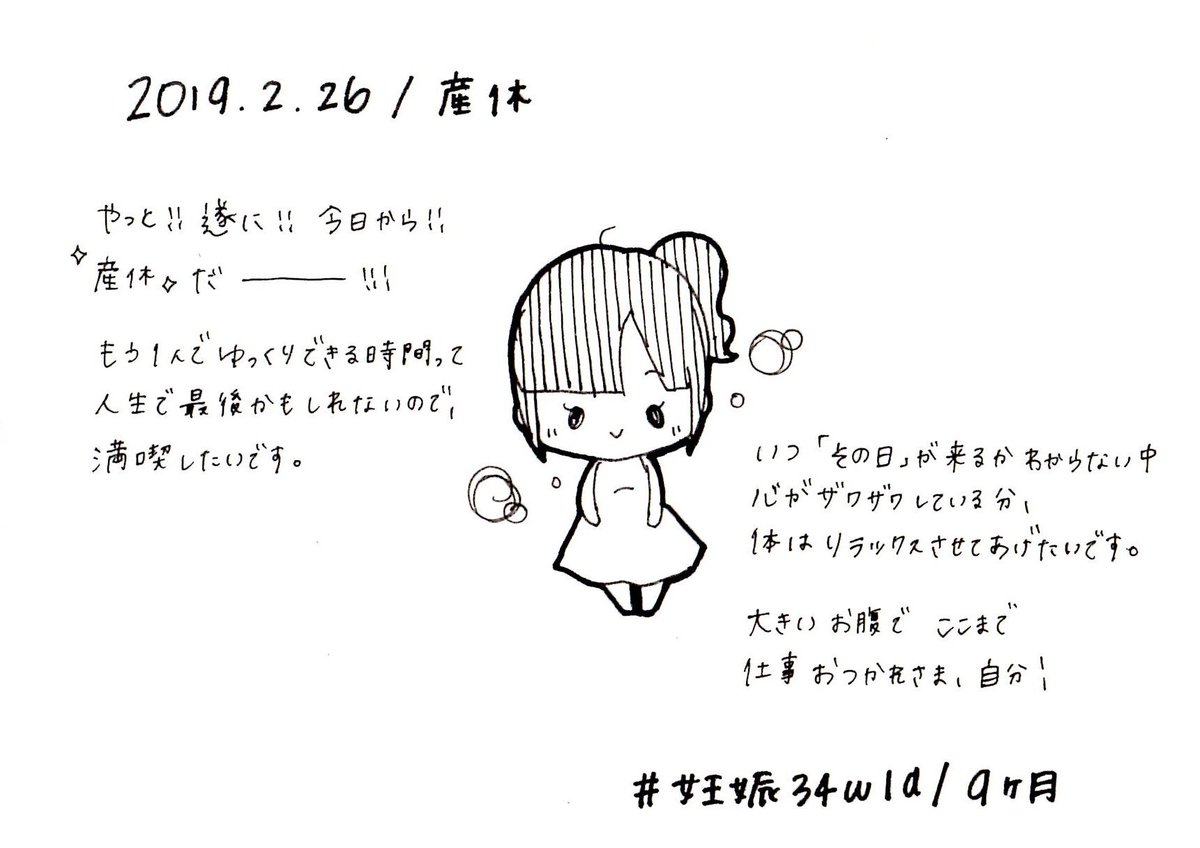 2019.2.26/産休
やっと!! 遂に!! 今日から!!
産休だ――!!!
もう1人でゆっくりできる時間って
人生で最後かもしれないので、
満喫したいです。
いつ「その日」が来るかわからない中
心がザワザワしている分、
体はリラックスさせてあげたいです。
大きいお腹で ここまで
仕事おつかれさま、自分!
#妊娠34w1d/9ヶ月